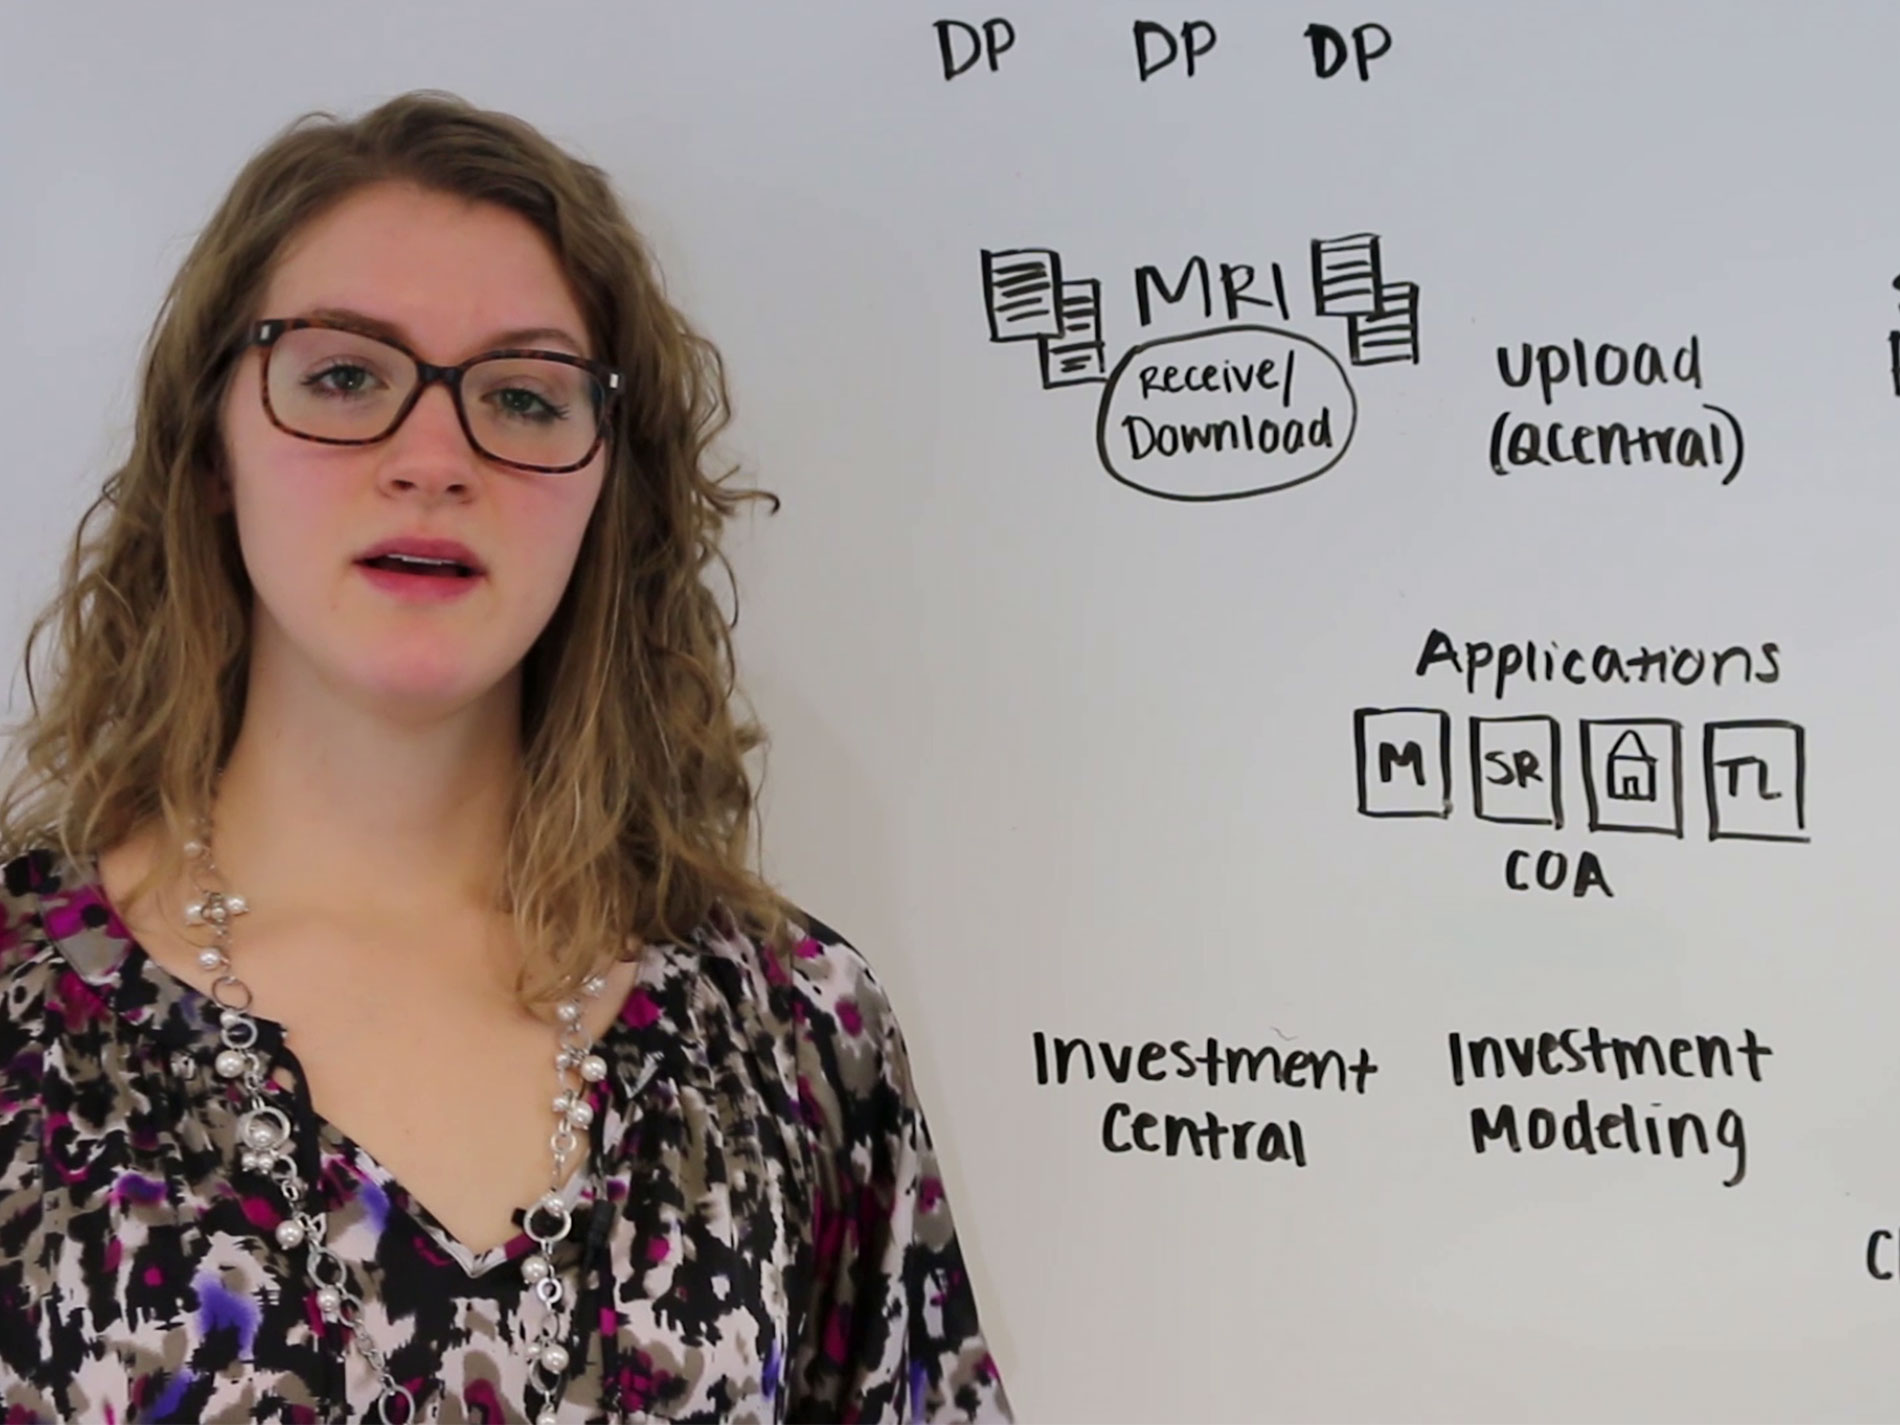 DP DP DP
MRI
Receive/
Download
upload
(QCentral)
Applications
M SR TL
COA
Investment
Central
Investment
Modeling